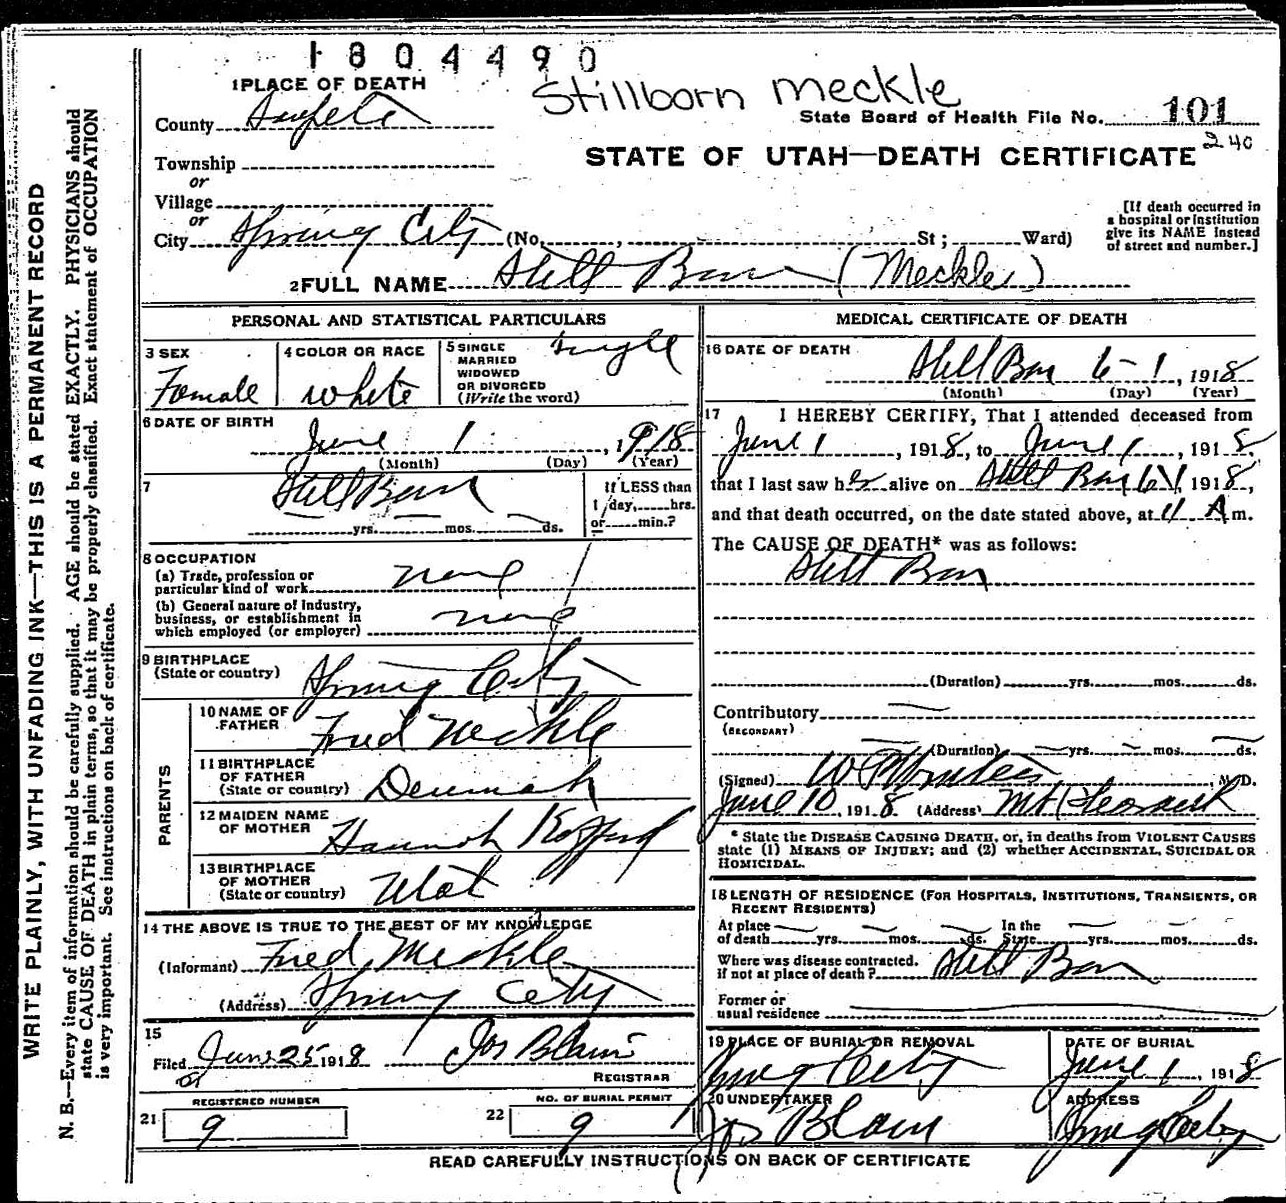 1804490
Stillborn Meckle
1 PLACE OF DEATH
County Sanpete
State Board of Health File No. 101
240
STATE OF UTAH—DEATH CERTIFICATE
Township
or
Village
or
City Spring City (No. , St ; Ward)
[If death occurred in
a hospital or institution
give its NAME instead
of street and number.]
2 FULL NAME Still Born (Meckle)
PERSONAL AND STATISTICAL PARTICULARS
3 SEX
Female
4 COLOR OR RACE
White
5 SINGLE
MARRIED
WIDOWED
OR DIVORCED
(Write the word)
Single
6 DATE OF BIRTH
June 1, 1918
(Month) (Day) (Year)
7
Still Born
yrs. mos. ds.
If LESS than
1 day, hrs.
or min.?
8 OCCUPATION
(a) Trade, profession or
particular kind of work none
(b) General nature of industry,
business, or establishment in
which employed (or employer) none
9 BIRTHPLACE
(State or country) Spring City
PARENTS
10 NAME OF
FATHER Fred Meckle
11 BIRTHPLACE
OF FATHER
(State or country) Denmark
12 MAIDEN NAME
OF MOTHER Hannah Kofford
13 BIRTHPLACE
OF MOTHER
(State or country) Utah
14 THE ABOVE IS TRUE TO THE BEST OF MY KNOWLEDGE
(Informant) Fred Meckle
(Address) Spring City
15
Filed June 25 1918 Jos Blain
REGISTRAR
REGISTERED NUMBER
21 9
NO. OF BURIAL PERMIT
22 9
MEDICAL CERTIFICATE OF DEATH
16 DATE OF DEATH
Still Born 6-1, 1918
(Month) (Day) (Year)
17 I HEREBY CERTIFY, That I attended deceased from
June 1, 1918, to June 1, 1918.
that I last saw her alive on Still Born 6/1, 1918,
and that death occurred, on the date stated above, at 11 A m.
The CAUSE OF DEATH* was as follows:
Still Born
(Duration) yrs. mos. ds.
Contributory
(SECONDARY)
(Duration) yrs. mos. ds.
(Signed) M.D.
June 10, 1918 (Address) Mt Pleasant
* State the DISEASE CAUSING DEATH, or, in deaths from VIOLENT CAUSES
state (1) MEANS OF INJURY; and (2) whether ACCIDENTAL, SUICIDAL OR
HOMICIDAL.
18 LENGTH OF RESIDENCE (FOR HOSPITALS, INSTITUTIONS, TRANSIENTS, OR
RECENT RESIDENTS)
At place In the
of death yrs. mos. ds. State yrs. mos. ds.
Where was disease contracted,
if not at place of death? Still Born
Former or
usual residence
19 PLACE OF BURIAL OR REMOVAL
Spring City
DATE OF BURIAL
June 1, 1918
20 UNDERTAKER
Jos Blain
ADDRESS
Spring City
READ CAREFULLY INSTRUCTIONS ON BACK OF CERTIFICATE
WRITE PLAINLY, WITH UNFADING INK—THIS IS A PERMANENT RECORD
N. B.—Every item of information should be carefully supplied. AGE should be stated EXACTLY. PHYSICIANS should
state CAUSE OF DEATH in plain terms, so that it may be properly classified. Exact statement of OCCUPATION
is very important. See instructions on back of certificate.